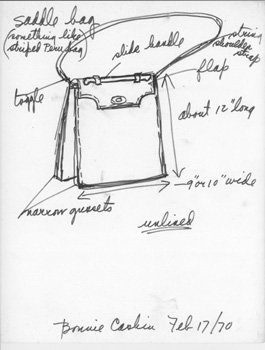 saddle bag
(something like
striped Peru bag)
slide handle
string
shoulder
strap
flap
toggle
about 12" long
9" or 10" wide
narrow gussets
unlined
Bonnie Cashin Feb 17/70